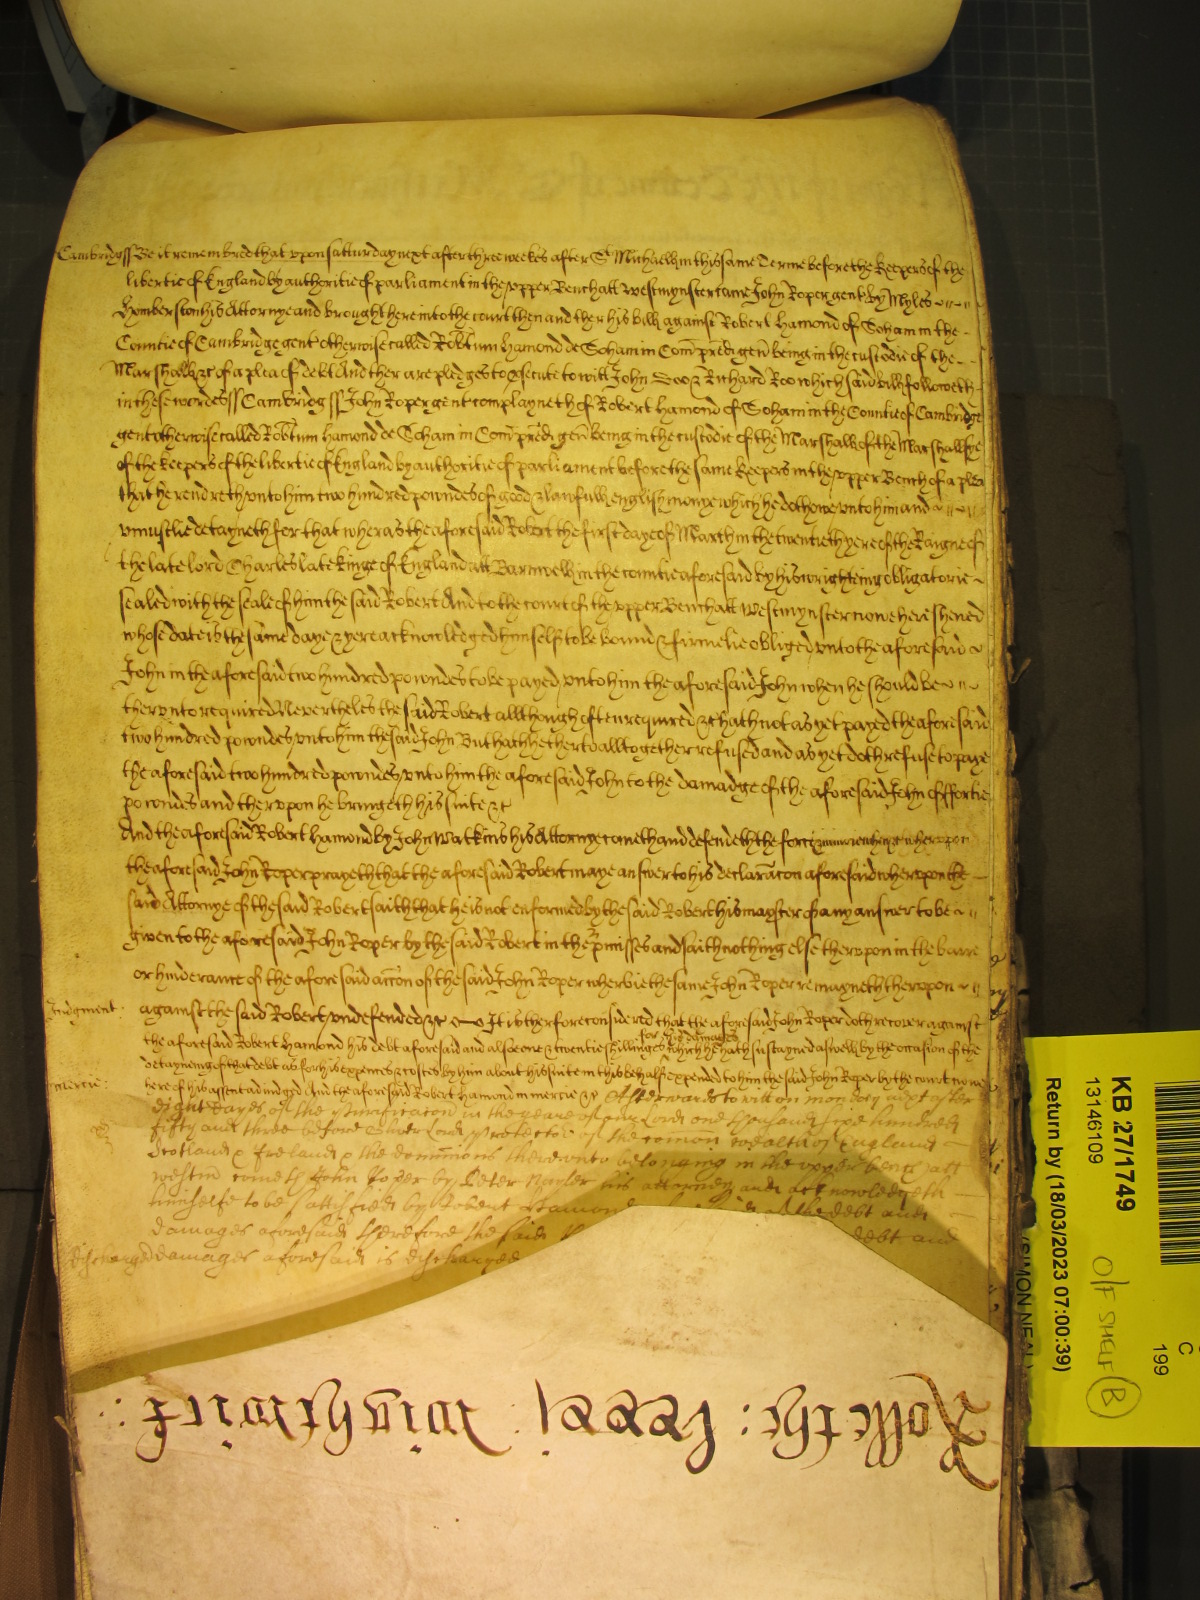 Cambridg ss Be it remembred that upon satturday next after three weekes after St Michaell in this same Terme before the keepers of the
libertie of England by authoritie of parliament in the upper Bench att Westmynster came John Roper gent by Myles
Homberston his Attornye and brought here into the court then and ther his bill against Robert Hamond of Soham in the
Countie of Cambridge gent otherwise called Robtum Hamond de Soham in Com pred gen being in the custodie of the
Marshall &c of a plea of debt And ther are pledges to p'secute to witt John Doo & Richard Roo which said bill followeth
in these wordes ss Cambridg ss John Roper gent complayneth of Robert Hamond of Soham in the Countie of Cambridge
gent otherwise called Robtum Hamond de Soham in Com pred gen being in the custodie of the Marshall of the Marshallsye
of the keepers of the libertie of England by authoritie of parliament before the same keepers in the upper Bench of a plea
that he rendreth unto him two hundred powndes of good & lawfull english monye which he doth owe unto him and
uniustlie detayneth for that wheras the aforesaid Robert the first daye of March in the twentieth yere of the Raigne of
the late lord Charles late kinge of England att Barnwell in the countie aforesaid by his wrighting obligatorie
sealed with the seale of him the said Robert And to the court of the upper Bench att Westmynster nowe here shewed
whose date is the same daye & yere acknowledged himself to be bound & firmelie obliged unto the aforesaid
John in the aforesaid two hundred powndes to be payed unto him the aforesaid John when he should be
therunto required Nevertheles the said Robert allthough often required &c hath not as yet payed the aforesaid
two hundred powndes unto him the said John But hath hetherto alltogether refused and as yet doth refuse to paye
the aforesaid two hundred powndes unto him the aforesaid John to the damadge of the aforesaid John of fortie
powndes and therupon he bringeth his suite &c
And the aforesaid Robert Hamond by John Watkins his Attornye cometh and defendeth the force wherupon
the aforesaid John Roper prayeth that the aforesaid Robert maye answer to his declaracon aforesaid wherupon the
said Attornye of the said Robert saith that he is not enformed by the said Robert his mayster of any answer to be
given to the aforesaid John Roper by the said Robert in the p'misses and saith nothing else therupon in the barre
or hinderance of the aforesaid accon of the said John Roper wherbie the same John Roper remayneth therupon
Judgment: against the said Robert undefended &c It is therfore considered that the aforesaid John Roper doth recover against
the aforesaid Robert Hamond his debt aforesaid and alsoe one & twentie shillinges for his damages which he hath sustayned aswell by the occasion of the
detayneing of that debt as for his expences & costes by him about his suite in this behalf expended to him the said John Roper by the court nowe
mercie: here of his assent adiudged And the aforesaid Robert Hamond in mercie &c Afterwards to witt on monday next after
Eight dayes of the purificacon in the yeare of our Lord one thousand sixe hundred
fifty and three before Oliver Lord protector of the comon wealth of England
Scotland & Ireland & the dominions thereunto belonging in the upper bench att
westm cometh John Roper by Peter Naylor his attorney and acknowledgeth
himselfe to be sattisfied by Robert Hamond of the debt and
damages aforesaid therefore the said debt and
discharged damages aforesaid is discharged
Rolle the:
KB 27/1749
13146109
Return by (18/03/2023 07:00:39)
O/F SHELF B
(SIMON NEAL)
C
199